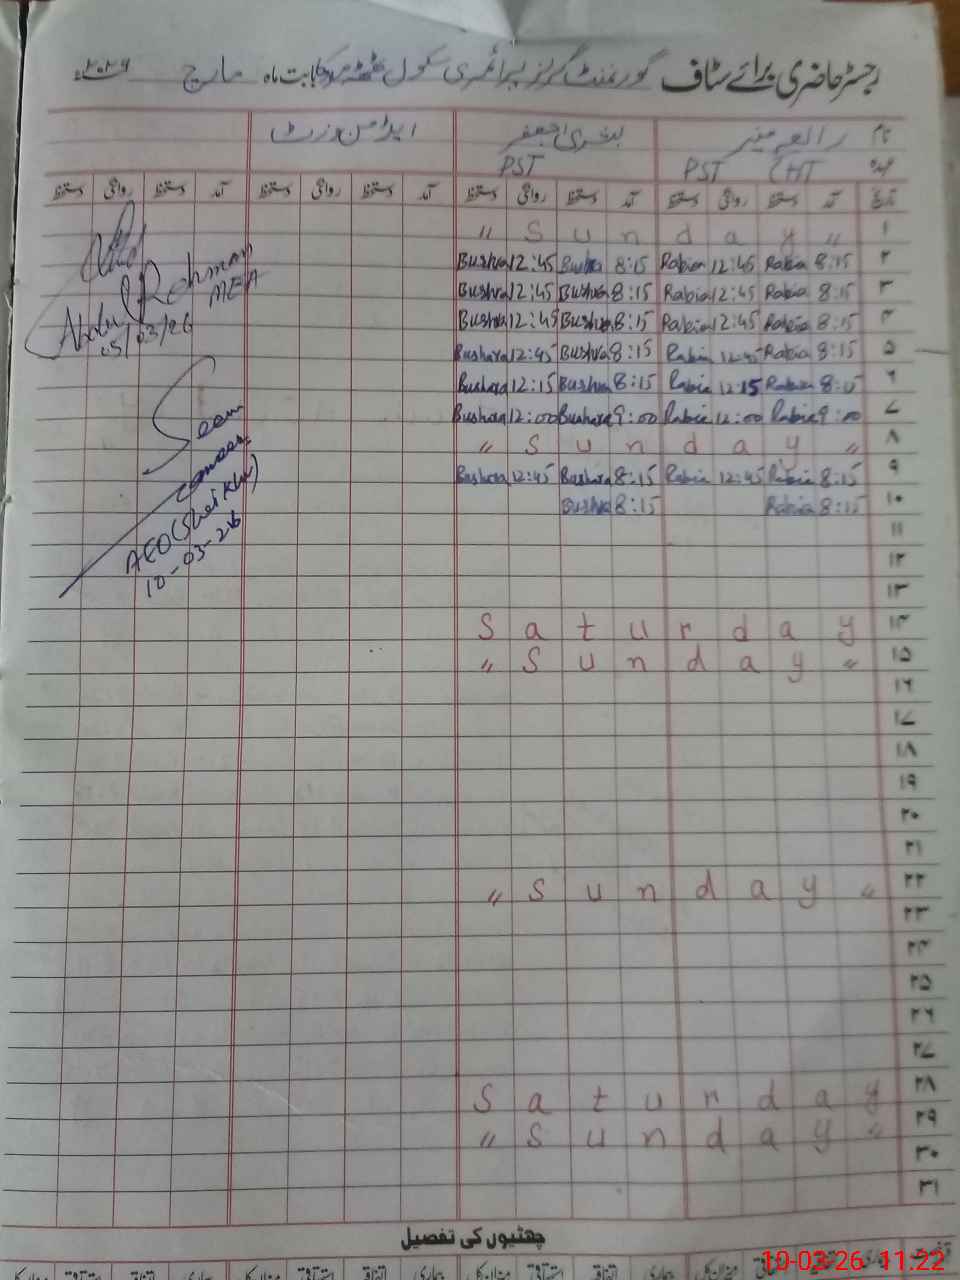 رجسٹر حاضری برائے سٹاف گورنمنٹ گرلز پرائمری سکول ٹھٹھہ بابت ماہ مارچ ۲۰۲۶
نام رابعہ منیر بشریٰ جعفر ایڈامن وزٹ
عہدہ CHT PST PST
تاریخ آمد دستخط روانگی دستخط آمد دستخط روانگی دستخط آمد دستخط روانگی دستخط آمد دستخط روانگی دستخط
۱ " S u n d a y "
۲ Bushra 12:45 Bushra 8:15 Rabia 12:45 Rabia 8:15
۳ Bushra 12:45 Bushra 8:15 Rabia 12:45 Rabia 8:15
۴ Bushra 12:45 Bushra 8:15 Rabia 12:45 Rabia 8:15
۵ Bushara 12:45 Bushra 8:15 Rabia 12:45 Rabia 8:15
۶ Bushara 12:15 Bushra 8:15 Rabia 12:15 Rabia 8:15
۷ Bushara 12:00 Bushara 9:00 Rabia 12:00 Rabia 9:00
۸ " S u n d a y "
۹ Bushra 12:45 Bushara 8:15 Rabia 12:45 Rabia 8:15
۱۰ Bushra 8:15 Rabia 8:15
۱۱
۱۲
۱۳
۱۴ S a t u r d a y
۱۵ " S u n d a y "
۱۶
۱۷
۱۸
۱۹
۲۰
۲۱
۲۲ " S u n d a y "
۲۳
۲۴
۲۵
۲۶
۲۷
۲۸ S a t u r d a y
۲۹ " S u n d a y "
۳۰
۳۱
Abdul Rehman
MEA
05/03/26
AEO (Sheikhu)
10-03-26
چھٹیوں کی تفصیل
10-03-26 11:22